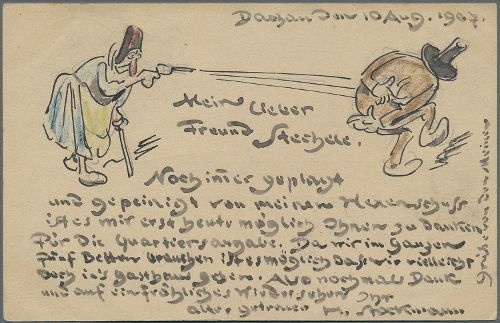 Dachau den 10 Aug. 1907.
Mein Lieber
Freund Stechele.
Noch im̄er geplagt
und gepeinigt von meinem Hexenschuss
ist es mir erst heute möglich Ihnen zu danken
für die Quartiersangabe. Da wir im Ganzen
fünf Betten brauchen ist es möglich das wir vielleicht
doch in's gasthaus gehen. Also nochmals Dank
und auf ein fröhliches Wiedersehen Ihr
alter getreuer H. Stockmann
Grüße von den Meinen